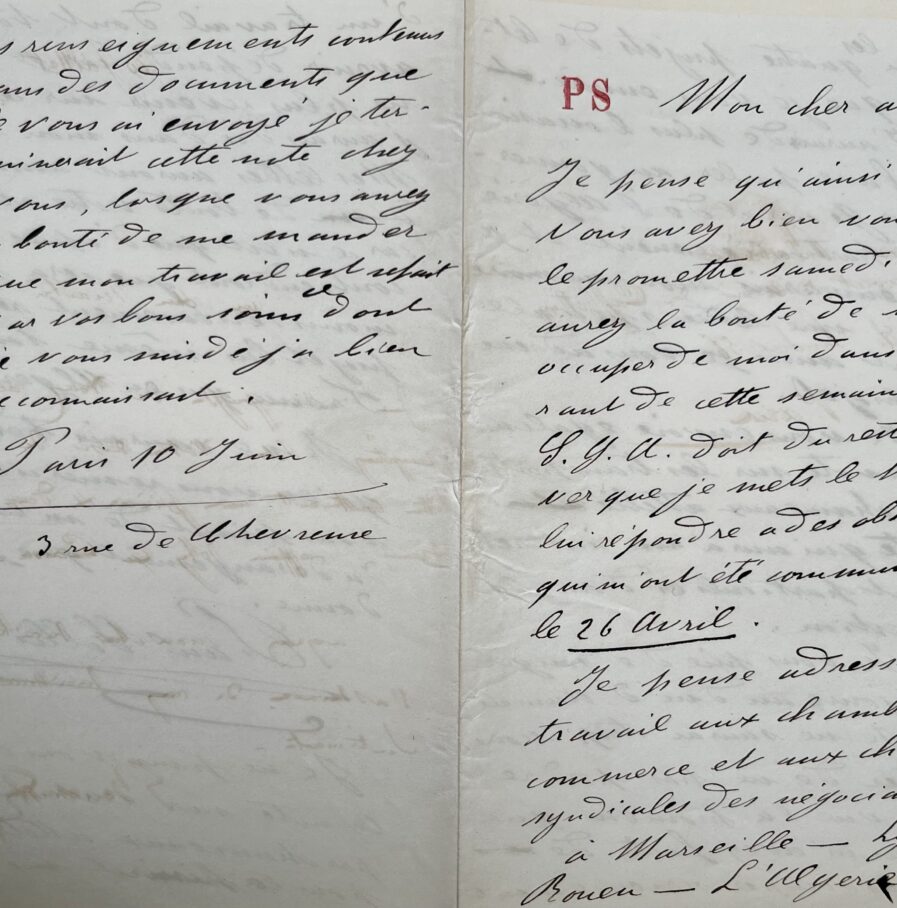 s renseignements contenus
ans des documents que
e vous ai envoyé je ter-
minerait cette note chez
vous, lorsque vous aurez
bonté de me mander
ue mon travail est refait
ar vos bons soins dont
e vous suis déja bien
econnaissant.
Paris 10 Juin
3 rue de Chevreuse
PS Mon cher a
Je pense qu'ainsi
vous avez bien vou
le promettre samedi
aurez la bonté de
occuper de moi dans
rant de cette semain
S.G.A. doit du rest
ver que je mets le
lui répondre a des obs
qui m'ont été commun
le 26 Avril.
Je pense adress
travail aux chamb
commerce et aux ch
syndicales des négocia
à Marseille — Ly
Rouen — L'Algerie